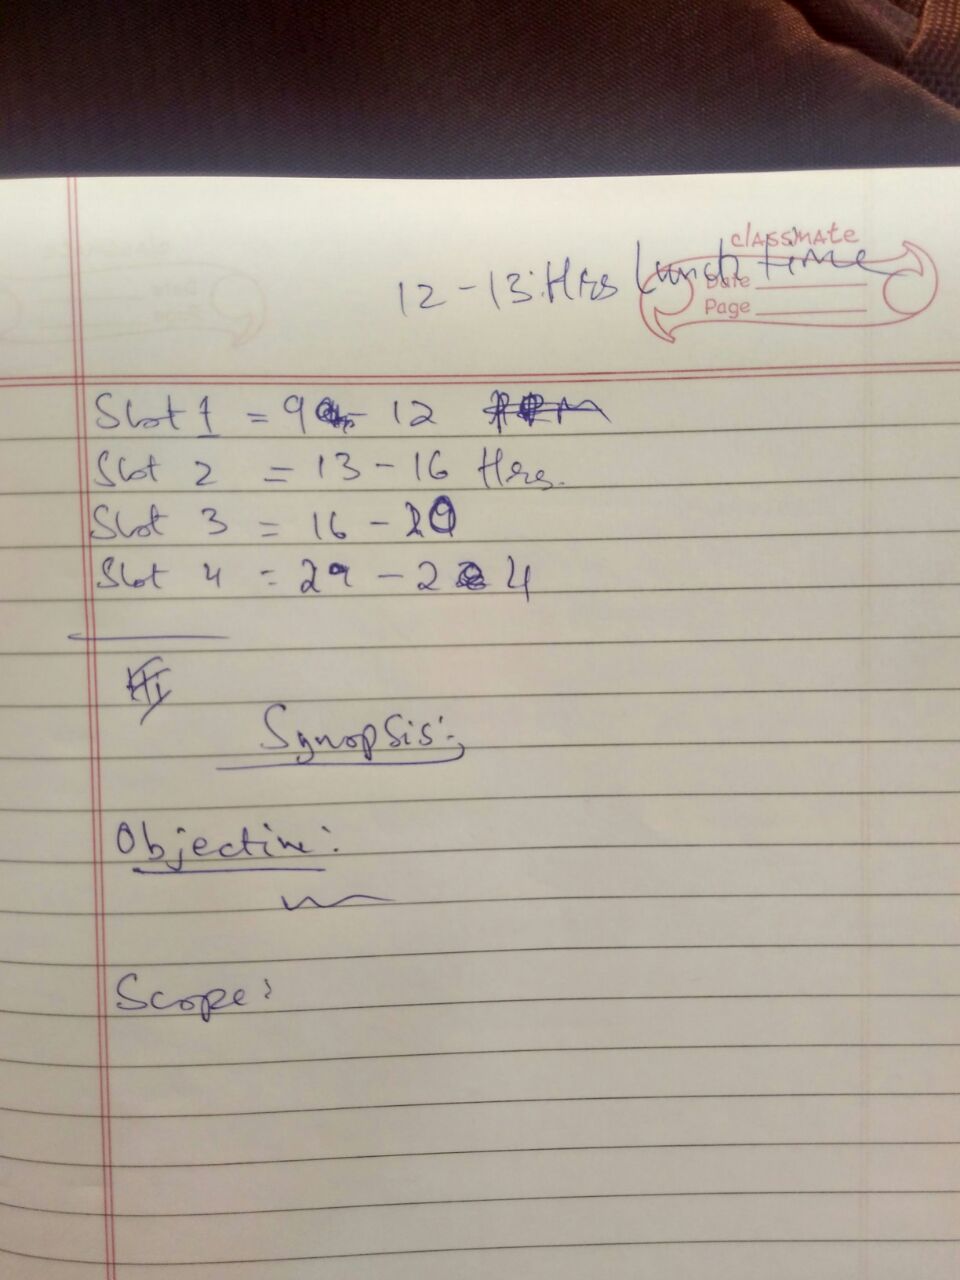 classmate
12-13 Hrs Lunch time
Date
Page
Slot 1 = 9 - 12
Slot 2 = 13 - 16 Hrs.
Slot 3 = 16 - 20
Slot 4 = 20 - 24
Synopsis:-
Objective:
Scope: